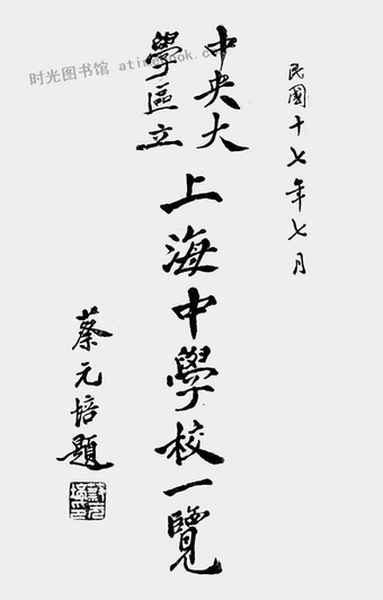 民國十七年七月
中央大
學區立
上海中學校一覽
蔡元培題
时光图书馆